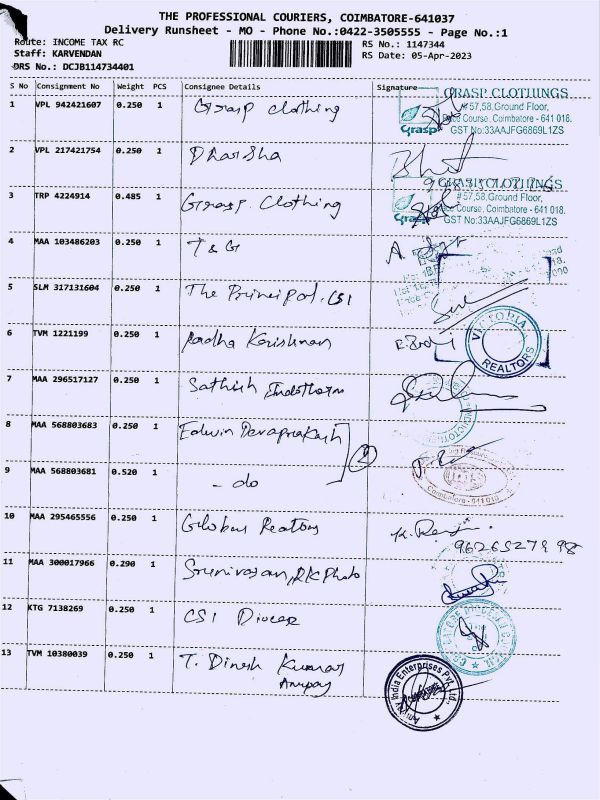 THE PROFESSIONAL COURIERS, COIMBATORE-641037
Delivery Runsheet - MO - Phone No.:0422-3505555 - Page No.:1
Route: INCOME TAX RC
Staff: KARVENDAN
DRS No.: DCJB114734401
RS No.: 1147344
RS Date: 05-Apr-2023
S No Consignment No Weight PCS Consignee Details Signature
1 VPL 942421607 0.250 1 Grasp clothing
GRASP CLOTHINGS
#57,58,Ground Floor,
Race Course, Coimbatore - 641 018.
Grasp GST No:33AAJFG6869L1ZS
2 VPL 217421754 0.250 1 Dharsha
3 TRP 4224914 0.485 1 Grasp Clothing
GRASP CLOTHINGS
#57,58,Ground Floor,
Race Course, Coimbatore - 641 018.
Grasp GST No:33AAJFG6869L1ZS
4 MAA 103486203 0.250 1 T & G
5 SLM 317131604 0.250 1 The Principal, CSI
6 TVM 1221199 0.250 1 Radha Krishnan
VICTORIA REALTORS
7 MAA 296517127 0.250 1 Sathish
8 MAA 568803683 0.250 1 Edwin Devaprakash
2
9 MAA 568803681 0.520 1 - do
Coimbatore - 641 018
10 MAA 295465556 0.250 1 Global
11 MAA 300017966 0.290 1 Srinivasan, RK Photo
12 KTG 7138269 0.250 1 CSI
13 TVM 10380039 0.250 1 T. Dinesh Kumar
India Enterprises Pvt. Ltd.